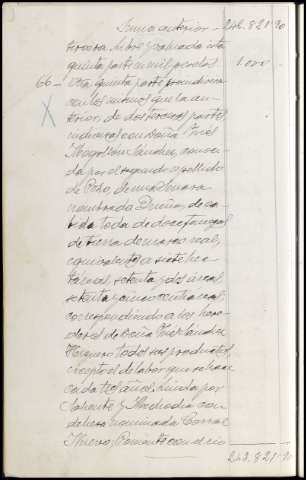 Suma anterior - 242.821.90
tercera libre y apreciada esta
quinta parte en mil pesetas 1.000
66 - Otra quinta parte proindiviso
con los mismos que la an-
terior, de dos terceras partes
indivisas con Doña Inés
Sánchez, conoci-
da por el segundo apellido
de Pozo, de una
nombrada de ca-
bida toda de doce fanegas
de tierra de marco real,
equivalentes a siete hec-
táreas, setenta y dos áreas
setenta y cinco centiáreas,
correspondiendo a los here-
deros de Doña
todos sus productos,
excepto el de labor que se hace
cada tres años. Linda por
Saliente y Mediodía con
dehesa nominada Corral
Nuevo, Poniente con el río
243.821.90